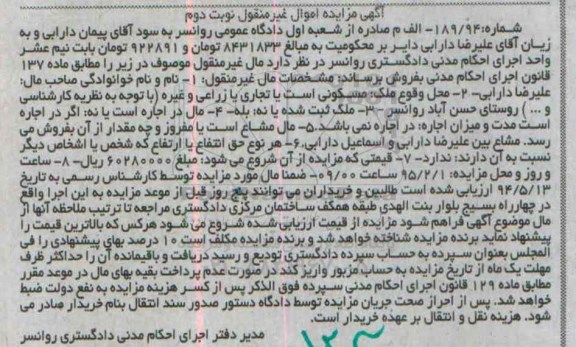 آگهی مزایده اموال غیرمنقول نوبت دوم
شماره:۱۸۹/۹۴- الف م صادره از شعبه اول دادگاه عمومی روانسر به سود آقای پیمان دارابی و به
زیان آقای علیرضا دارابی دایر بر محکومیت به مبالغ ۸۴۳۱۸۳۳ تومان و ۹۲۲۸۹۱ تومان بابت نیم عشر
واحد اجرای احکام مدنی دادگستری روانسر در نظر دارد مال غیرمنقول موصوف در زیر را مطابق ماده ۱۳۷
قانون اجرای احکام مدنی بفروش برساند: مشخصات مال غیرمنقول: ۱- نام و نام خوانوادگی صاحب مال:
علیرضا دارابی- ۲- محل وقوع ملک: مسکونی است یا تجاری یا زراعی و غیره (با توجه به نظریه کارشناسی
و ... ) روستای حسن آباد روانسر -۳- ملک ثبت شده یا نه: بله- ۴- مال در اجاره است یا نه: اگر در اجاره
است مدت و میزان اجاره: در اجاره نمی باشد.۵- مال مشاع است یا مفروز و چه مقدار از آن بفروش می
رسد. مشاع بین علیرضا دارابی و اسماعیل دارابی.۶- هر نوع حق انتفاع یا ارتفاع که شخص یا اشخاص دیگر
نسبت به آن دارند: ندارد- ۷- قیمتی که مزایده از آن شروع می شود: مبلغ ۶۰۲۸۰۰۰۰ ریال- ۸- ساعت
و روز و محل مزایده: ۹۵/۲/۱ ساعت ۰۹/۰۰- ضمنا مال مورد مزایده توسط کارشناس رسمی به تاریخ
۹۴/۵/۱۳ ارزیابی شده است طالبین و خریداران می توانند پنج روز قبل از موعد مزایده به این اجرا واقع
در چهارراه بسیج بلوار بنت الهدی طبقه همکف ساختمان مرکزی دادگستری مراجعه تا ترتیب ملاحظه آنها از
مال موضوع آگهی فراهم شود مزایده از قیمت ارزیابی شده شروع می شود هرکس که بالاترین قیمت را
پیشنهاد نماید برنده مزایده شناخته خواهد شد و برنده مزایده مکلف است ۱۰ درصد بهای پیشنهادی را فی
المجلس بعنوان سپرده به حساب سپرده دادگستری تودیع و رسید دریافت و باقیمانده آن را حداکثر ظرف
مهلت یک ماه از تاریخ مزایده به حساب مزبور واریز کند در صورت عدم پرداخت بقیه بهای مال در موعد مقرر
مطابق ماده ۱۲۹ قانون اجرای احکام مدنی سپرده فوق الذکر پس از کسر هزینه مزایده به نفع دولت ضبط
خواهد شد. پس از احراز صحت جریان مزایده توسط دادگاه دستور صدور سند انتقال بنام خریدار صادر می
شود. هزینه نقل و انتقال بر عهده خریدار است.
مدیر دفتر اجرای احکام مدنی دادگستری روانسر